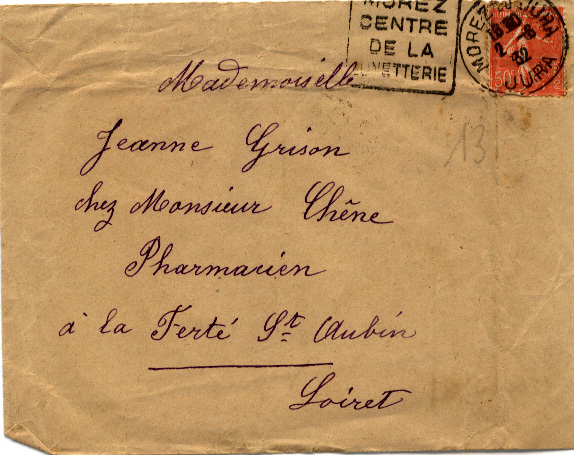 MOREZ
CENTRE
DE LA
LUNETTERIE
MOREZ DU JURA
18 30
2 - 8
32
JURA
50
Mademoiselle
13
Jeanne Grison
chez Monsieur Chêne
Pharmacien
à la Ferté St Aubin
Loiret